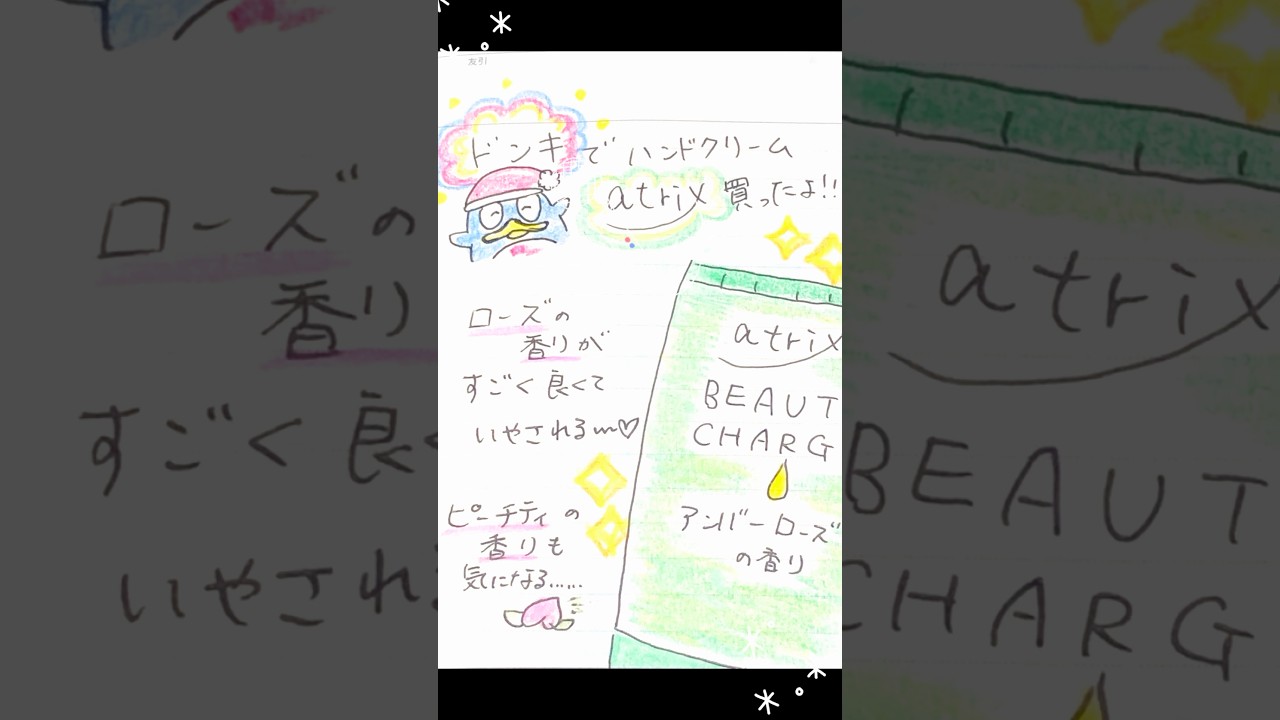 友引
ドンキでハンドクリーム
atrix 買ったよ!!
ローズの
香りが
すごく良くて
いやされる〰♡
ピーチティの
香りも
気になる……
atrix
BEAUT
CHARG
アンバーローズ
の香り
ローズの
香り
すごく良
いやされ
atrix
BEAUT
CHARG